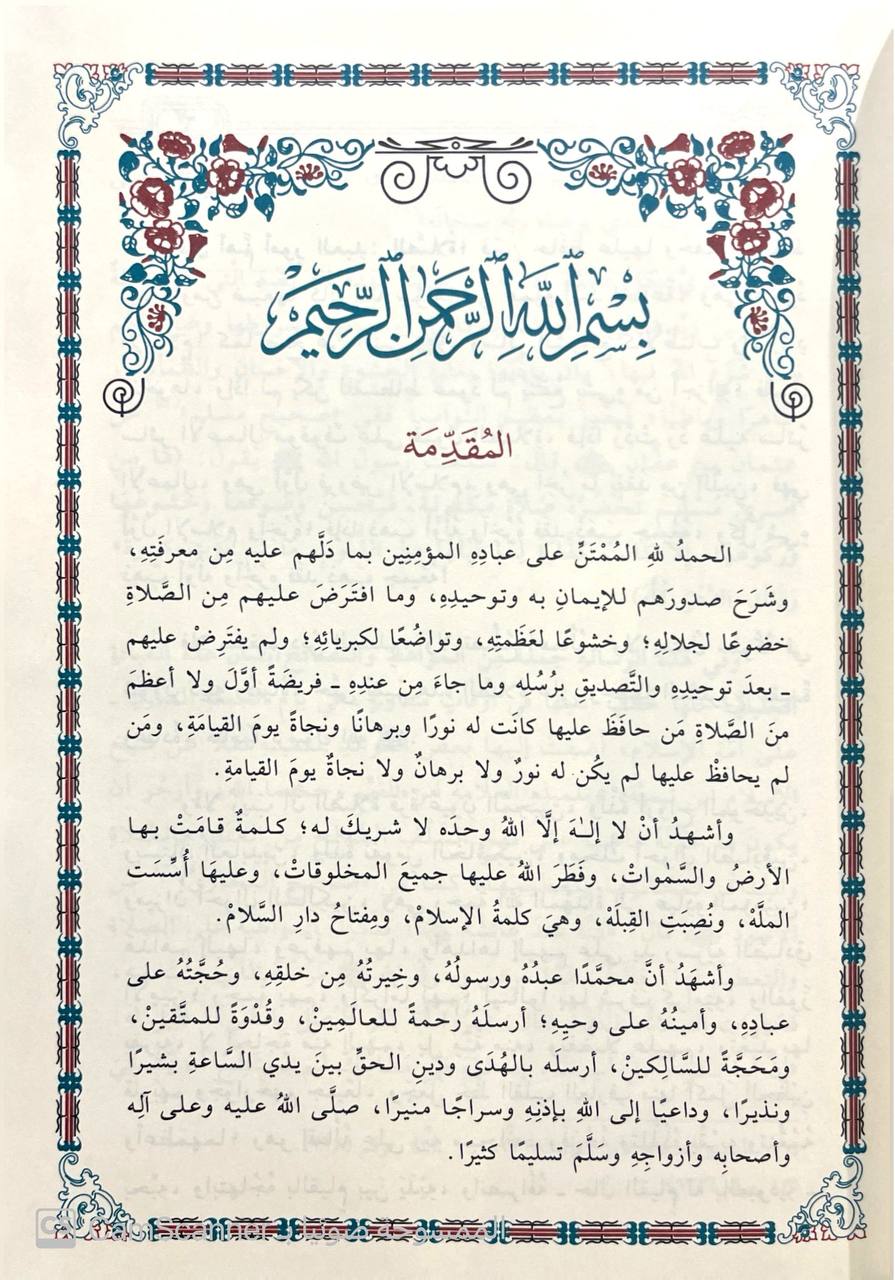 بِسْمِ ٱللَّهِ ٱلرَّحْمَٰنِ ٱلرَّحِيمِ
المُقَدِّمَة
الحمدُ للهِ المُمْتَنِّ على عبادِهِ المؤمِنِين بما دَلَّهم عليه مِن معرفَتِهِ،
وشَرَحَ صدورَهم للإيمانِ به وتوحيدِهِ، وما افتَرَضَ عليهم مِن الصَّلاةِ
خضوعًا لجلالِهِ؛ وخشوعًا لعَظَمتِهِ، وتواضُعًا لكبريائِهِ؛ ولم يفتَرِضْ عليهم
ـ بعدَ توحيدِهِ والتَّصديقِ برُسُلِه وما جاءَ مِن عندِهِ ـ فريضَةً أوَّلَ ولا أعظمَ
منَ الصَّلاةِ مَن حافَظَ عليها كانَت له نورًا وبرهانًا ونجاةً يومَ القيامَةِ، ومَن
لم يحافظْ عليها لم يكُن له نورٌ ولا برهانٌ ولا نجاةٌ يومَ القيامةِ.
وأشهدُ أنْ لا إلـٰهَ إلَّا اللهُ وحدَه لا شريكَ له؛ كلمةٌ قامَتْ بها
الأرضُ والسَّمٰواتْ، وفَطَرَ اللهُ عليها جميعَ المخلوقاتْ، وعليهَا أُسِّسَت
الملَّهْ، ونُصِبَتِ القِبلَهْ، وهيَ كلمةُ الإسلامْ، ومِفتاحُ دارِ السَّلامْ.
وأشهَدُ أنَّ محمَّدًا عبدُهُ ورسولُهُ، وخِيرتُهُ مِن خلقِهِ، وحُجَّتُهُ على
عبادِهِ، وأمينُهُ على وحيِهِ؛ أرسلَهُ رحمةً للعالَمِينْ، وقُدْوَةً للمتَّقينْ،
ومَحَجَّةً للسَّالِكينْ، أرسلَه بالهُدَى ودينِ الحقِّ بينَ يدي السَّاعةِ بشيرًا
ونذيرًا، وداعيًا إلى اللهِ بإذنِهِ وسراجًا منيرًا، صلَّى اللهُ عليه وعلى آلِه
وأصحابِه وأزواجِهِ وسَلَّمَ تسليمًا كثيرًا.
الممسوحة ضوئيا بـ CamScanner